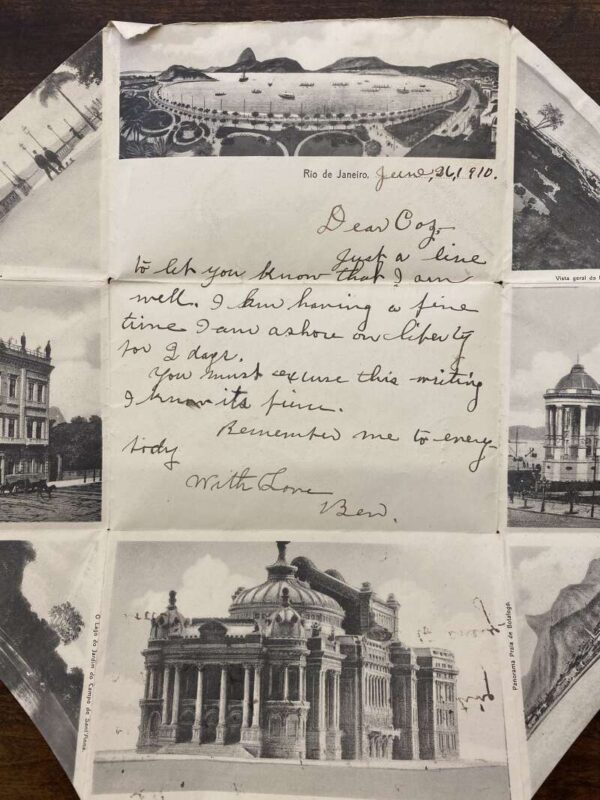 Rio de Janeiro, June, 26, 1910.
Dear Coz,
Just a line
to let you know that I am
well. I am having a fine
time I am ashore on liberty
for 2 days.
You must excuse this writing
I know its fierce.
Remember me to every-
body
With Love
Ben.
Vista geral do
O Lago do Jardim do Campo de Sant'Anna.
Panorama Praia de Botafogo